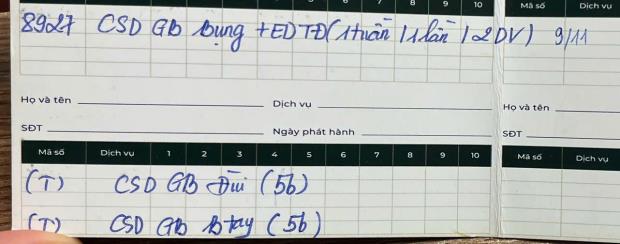 8 9 10 Mã số Dịch vụ
8927 CSD GB bụng + EDTĐ (1 tuần / 1 lần / 2DV) 9/11
Họ và tên Dịch vụ Họ và tên
SĐT Ngày phát hành SĐT
Mã số Dịch vụ 1 2 3 4 5 6 7 8 9 10 Mã số Dịch vụ
(T) CSD GB Đùi (5b)
(T) CSD GB B tay (5b)